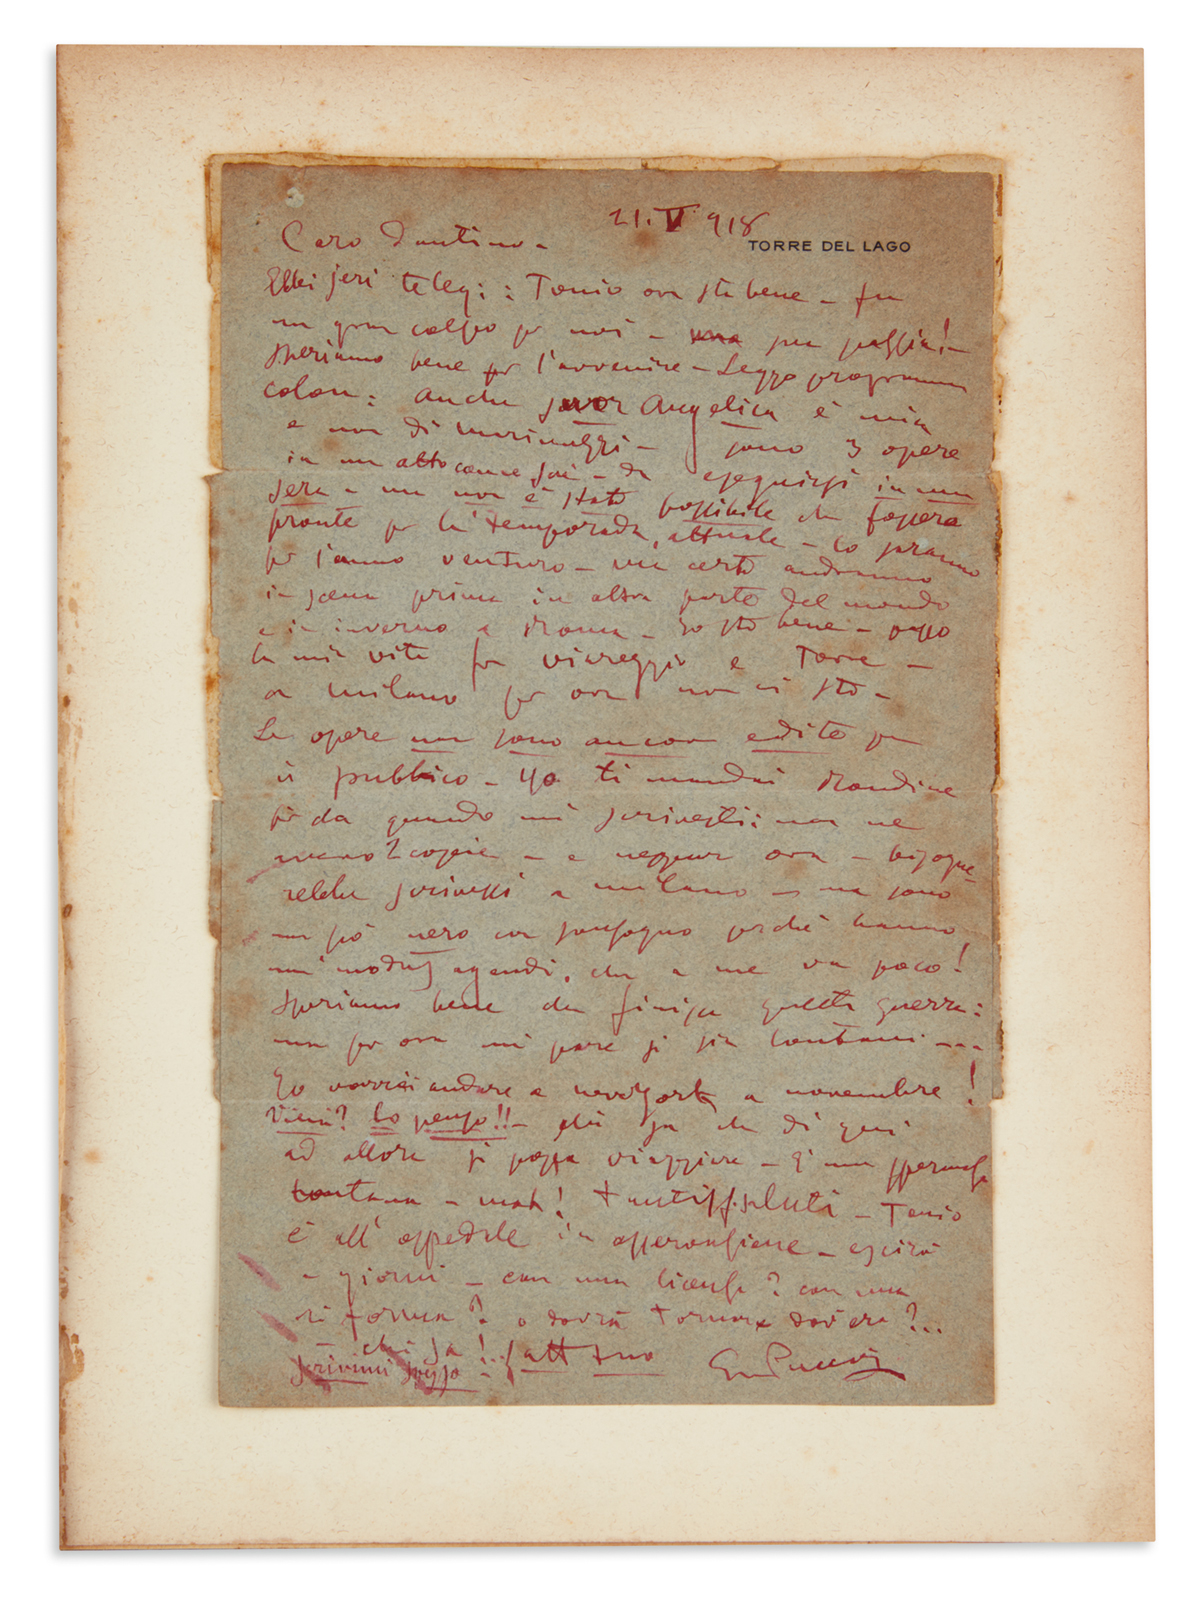 21.V 918
TORRE DEL LAGO
Caro Dantino -
Ebbi jeri teleg: : Tonio ora sta bene - fu
un gran colpo per noi - una per passia! -
Speriamo bene per l'avvenire - Leggo programma
colon: Anche suor Angelica è mia
e non di - sono 3 opere
in un atto come sai - da eseguirsi in una
sera - ma non è stato possibile che fossero
pronte per la temporada attuale - lo saranno
per l'anno venturo - ma certo andranno
in scena prima in altra parte del mondo
e in inverno a Roma - Io sto bene - passo
la mia vita fra viareggio e Torre -
a milano per ora non ci sto -
Le opere non sono ancora edite per
il pubblico - Io ti mandai Rondine
fin da quando mi scrivesti: non ne
copie - e neppure ora - bisogne-
rebbe scrivessi a milano - ma sono
un pò nero con sonzogno perchè hanno
un modus agendi, che a me va poco!
Speriamo bene che finisca questa guerra:
ma per ora mi pare si sia lontani ---
Io vorrei andare a nevvyork a novembre!
Vieni? Lo penso!! - chi sa che di qui
ad allora si possa viaggiare - È una speranza
lontana - mah! tantissaluti - Tonio
è all'ospedale in osservazione - escirà
a giorni - con una licenza? con una
riforma? o dovrà tornare dov'era?..
- chi sa!..
scrivimi spesso - aff tuo G Puccini